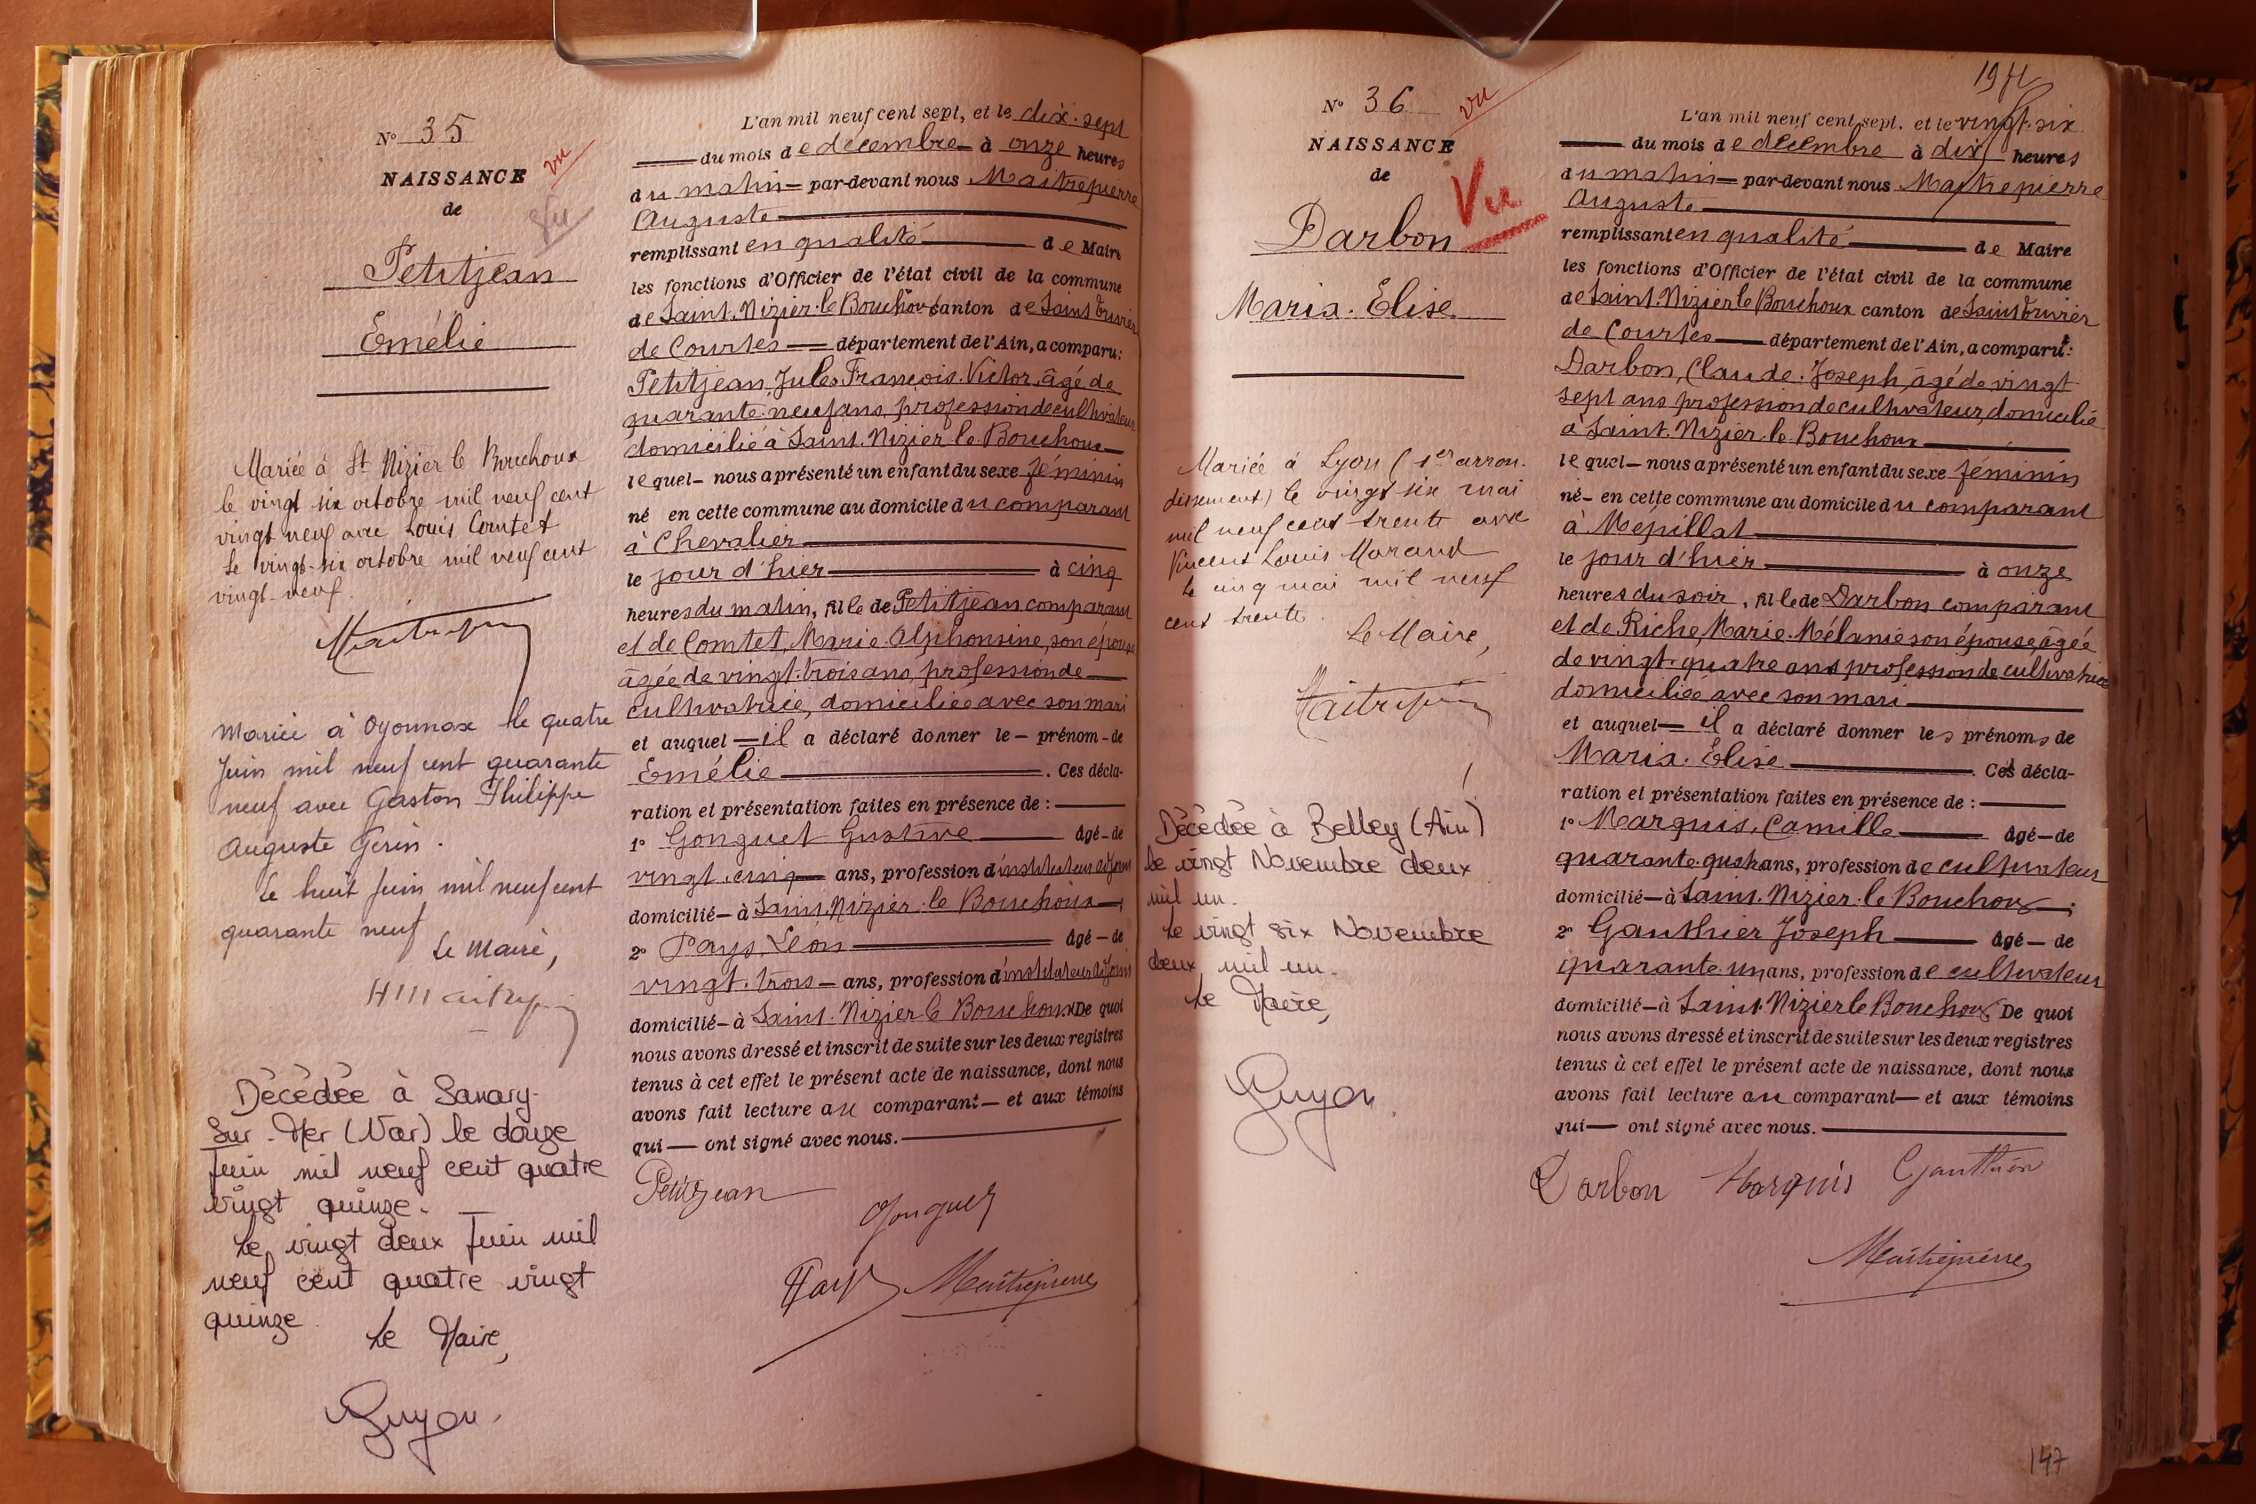 N° 35
vu
NAISSANCE
de
Vu
Petitjean
Emélie
Mariée à St Nizier le Bouchoux
le vingt six octobre mil neuf cent
vingt neuf avec Louis Comtet
Le vingt-six octobre mil neuf cent
vingt-neuf.
Maitrepierre
Mariée à Oyonnax le quatre
Juin mil neuf cent quarante
neuf avec Gaston Philippe
Auguste Gerin.
Le huit Juin mil neuf cent
quarante neuf
Le Maire,
Maitrepierre
Décédée à Sanary-
Sur-Mer (Var) le douze
Juin mil neuf cent quatre
vingt quinze.
Le vingt deux Juin mil
neuf cent quatre vingt
quinze.
Le Maire,
Guyon.
L'an mil neuf cent sept, et le dix-sept
du mois de décembre à onze heures
du matin par-devant nous Maitrepierre
Auguste
remplissant en qualité de Maire
les fonctions d'Officier de l'état civil de la commune
de Saint-Nizier-le-Bouchoux canton de Saint Trivier
de Courtes département de l'Ain, a comparu:
Petitjean, Jules François Victor, âgé de
quarante-neuf ans, profession de cultivateur
domicilié à Saint-Nizier-le-Bouchoux
lequel nous a présenté un enfant du sexe féminin
né en cette commune au domicile du comparant
à Chevalier
le jour d'hier à cinq
heures du matin, fille de Petitjean comparant
et de Comtet, Marie Alphonsine, son épouse
âgée de vingt-trois ans, profession de
cultivatrice, domiciliée avec son mari
et auquel il a déclaré donner le prénom de
Emélie. Ces décla-
ration et présentation faites en présence de :
1° Gonguet Gustave âgé de
vingt-cinq ans, profession d'instituteur adjoint
domicilié à Saint-Nizier-le-Bouchoux;
2° Pays, Léon âgé de
vingt-trois ans, profession d'instituteur adjoint
domicilié à Saint-Nizier le Bouchoux. De quoi
nous avons dressé et inscrit de suite sur les deux registres
tenus à cet effet le présent acte de naissance, dont nous
avons fait lecture au comparant et aux témoins
qui ont signé avec nous.
Petitjean
Gonguet
Pays Maitrepierre
N° 36
vu
NAISSANCE
de
Vu
Darbon
Maria. Elise
Mariée à Lyon (1er arron-
dissement) le vingt six mai
mil neuf cent trente avec
Vincent Louis Marand
Le cinq mai mil neuf
cent trente.
Le Maire,
Maitrepierre
Décédée à Belley (Ain)
le vingt Novembre deux
mil un.
Le vingt six Novembre
deux mil un.
Le Maire,
Guyon
L'an mil neuf cent sept, et le vingt-six
du mois de décembre à dix heures
du matin par-devant nous Maitrepierre
Auguste
remplissant en qualité de Maire
les fonctions d'Officier de l'état civil de la commune
de Saint-Nizier le Bouchoux canton de Saint Trivier
de Courtes département de l'Ain, a comparu:
Darbon, Claude-Joseph, âgé de vingt
sept ans profession de cultivateur, domicilié
à Saint-Nizier-le-Bouchoux
lequel nous a présenté un enfant du sexe féminin
né en cette commune au domicile du comparant
à Mépillat
le jour d'hier à onze
heures du soir, fille de Darbon comparant
et de Riche, Marie-Mélanie son épouse, âgée
de vingt-quatre ans profession de cultivatrice
domiciliée avec son mari
et auquel il a déclaré donner les prénoms de
Maria. Elise. Ces décla-
ration et présentation faites en présence de :
1° Marquis, Camille âgé de
quarante-quatre ans, profession de cultivateur
domicilié à Saint-Nizier-le-Bouchoux;
2° Gauthier Joseph âgé de
quarante-un ans, profession de cultivateur
domicilié à Saint-Nizier le Bouchoux De quoi
nous avons dressé et inscrit de suite sur les deux registres
tenus à cet effet le présent acte de naissance, dont nous
avons fait lecture au comparant et aux témoins
qui ont signé avec nous.
Darbon Marquis Gauthier
Maitrepierre
147